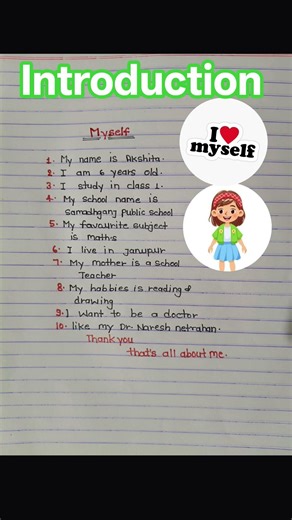 Introduction
I ❤ myself
Myself
1. My name is Akshita.
2. I am 6 years old.
3. I study in class 1.
4. My school name is
Samadhganj Public school
5. My favourite subject
is maths
6. I live in janupur
7. My mother is a school
Teacher
8. My habbies is reading &
drawing
9. I want to be a doctor
10. like my Dr. Naresh netrahan.
Thank you
that's all about me.